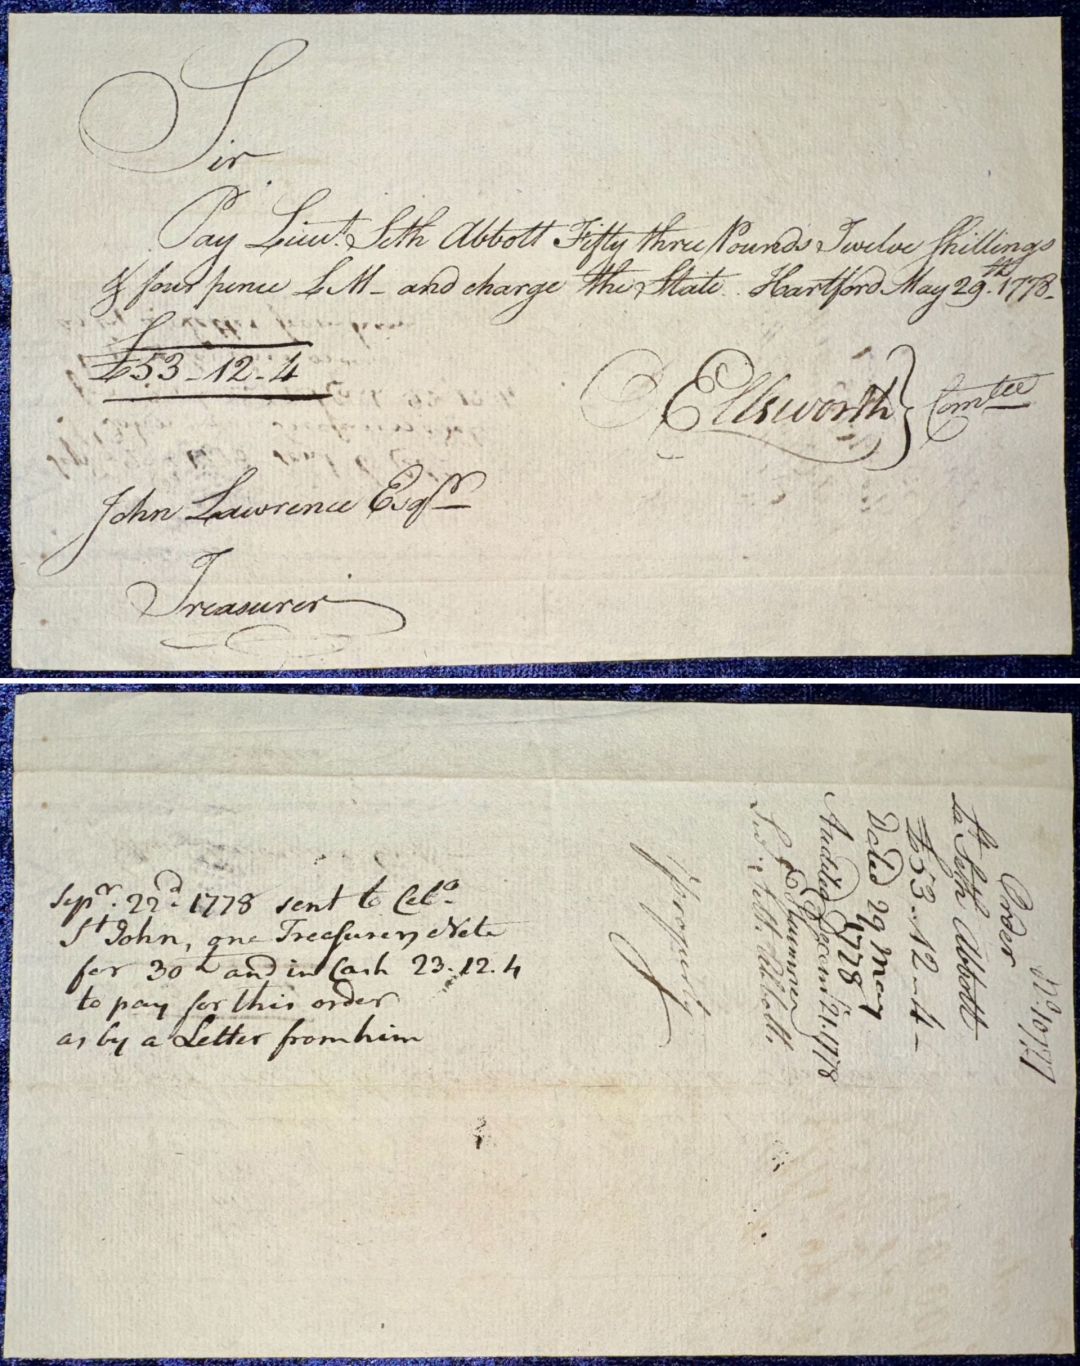 Sir
Pay Lieut. Seth Abbott Fifty three Pounds Twelve Shillings
& four pence L M - and charge the State. Hartford May 29th. 1778-
£53-12-4
O Ellsworth } Comtee
John Lawrence Esqr
Treasurer
Sepr. 22d. 1778 sent to Colo.
St John, one Treasurers Note
for 30£ and in Cash 23.12.4
to pay for this order
as by a Letter from him
Property
No
Order
Lt Seth Abbott
£53-12-4-
Dated 29 May
1778
Audited Decemr 21. 1778
Examined
Seth Abbott.